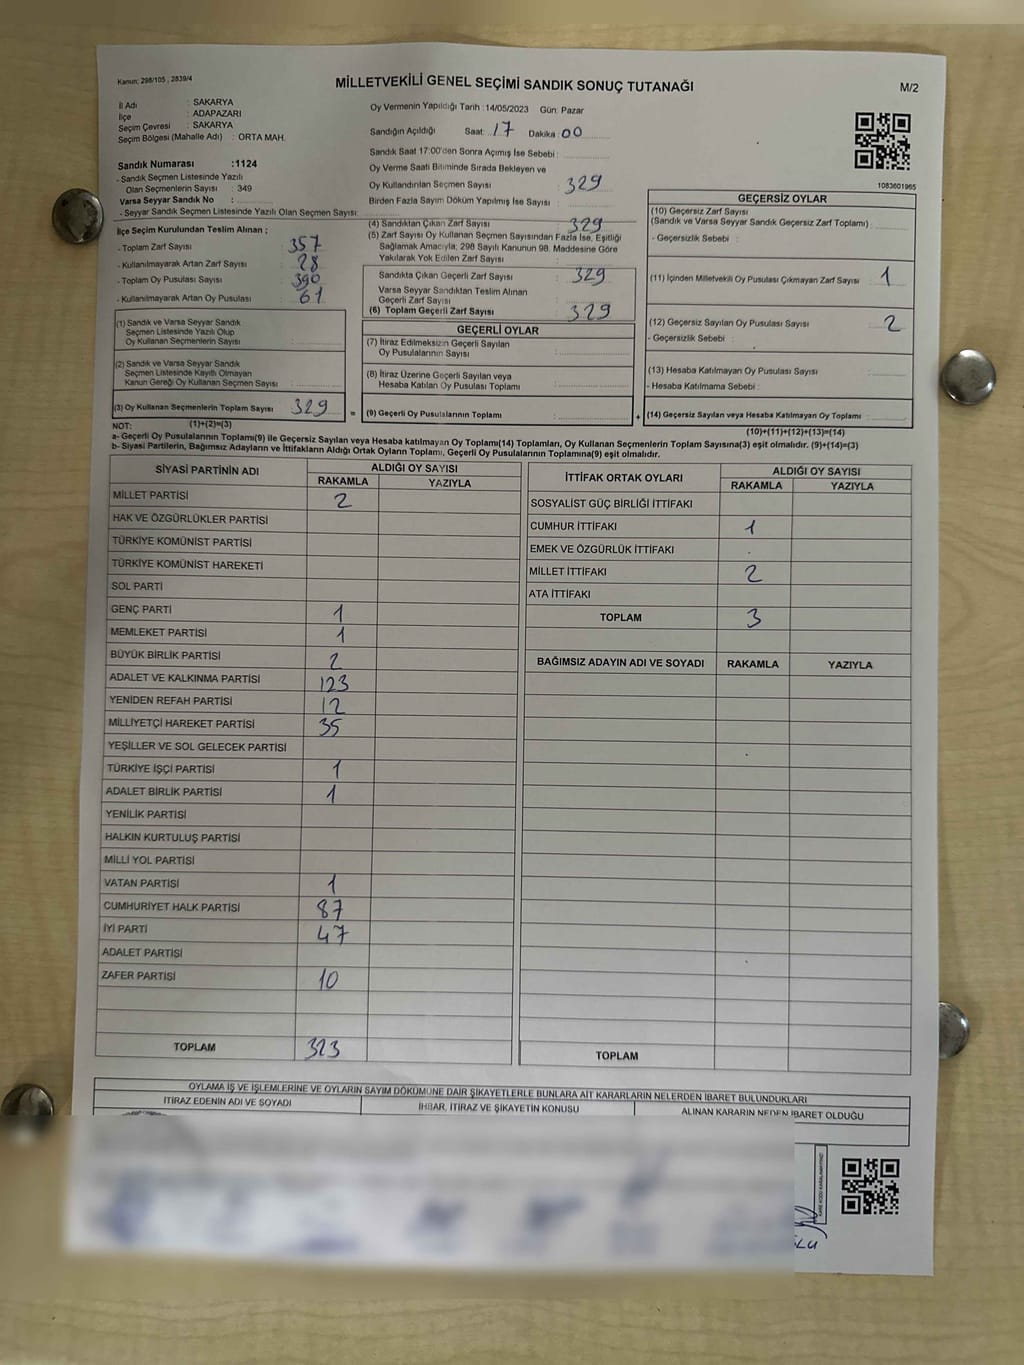 Kanun; 298/105 , 2839/4
MİLLETVEKİLİ GENEL SEÇİMİ SANDIK SONUÇ TUTANAĞI
M/2
İl Adı : SAKARYA
İlçe : ADAPAZARI
Seçim Çevresi : SAKARYA
Seçim Bölgesi (Mahalle Adı) : ORTA MAH.
Sandık Numarası :1124
- Sandık Seçmen Listesinde Yazılı
Olan Seçmenlerin Sayısı : 349
Varsa Seyyar Sandık No :
- Seyyar Sandık Seçmen Listesinde Yazılı Olan Seçmen Sayısı:
İlçe Seçim Kurulundan Teslim Alınan ;
- Toplam Zarf Sayısı : 357
- Kullanılmayarak Artan Zarf Sayısı : 28
- Toplam Oy Pusulası Sayısı : 390
- Kullanılmayarak Artan Oy Pusulası : 61
(1) Sandık ve Varsa Seyyar Sandık
Seçmen Listesinde Yazılı Olup
Oy Kullanan Seçmenlerin Sayısı :
(2) Sandık ve Varsa Seyyar Sandık
Seçmen Listesinde Kayıtlı Olmayan
Kanun Gereği Oy Kullanan Seçmen Sayısı :
(3) Oy Kullanan Seçmenlerin Toplam Sayısı 329 =
(1)+(2)=(3)
Oy Vermenin Yapıldığı Tarih : 14/05/2023 Gün: Pazar
Sandığın Açıldığı Saat: 17 Dakika : 00
Sandık Saat 17:00'den Sonra Açılmış İse Sebebi :
Oy Verme Saati Bitiminde Sırada Bekleyen ve
Oy Kullandırılan Seçmen Sayısı : 329
Birden Fazla Sayım Döküm Yapılmış İse Sayısı :
(4) Sandıktan Çıkan Zarf Sayısı : 329
(5) Zarf Sayısı Oy Kullanan Seçmen Sayısından Fazla İse, Eşitliği
Sağlamak Amacıyla; 298 Sayılı Kanunun 98. Maddesine Göre
Yakılarak Yok Edilen Zarf Sayısı :
Sandıkta Çıkan Geçerli Zarf Sayısı : 329
Varsa Seyyar Sandıktan Teslim Alınan
Geçerli Zarf Sayısı :
(6) Toplam Geçerli Zarf Sayısı : 329
GEÇERLİ OYLAR
(7) İtiraz Edilmeksizin Geçerli Sayılan
Oy Pusulalarının Sayısı :
(8) İtiraz Üzerine Geçerli Sayılan veya
Hesaba Katılan Oy Pusulası Toplamı :
(9) Geçerli Oy Pusulalarının Toplamı : +
1083601965
GEÇERSİZ OYLAR
(10) Geçersiz Zarf Sayısı
(Sandık ve Varsa Seyyar Sandık Geçersiz Zarf Toplamı) :
- Geçersizlik Sebebi :
(11) İçinden Milletvekili Oy Pusulası Çıkmayan Zarf Sayısı : 1
(12) Geçersiz Sayılan Oy Pusulası Sayısı : 2
- Geçersizlik Sebebi :
(13) Hesaba Katılmayan Oy Pusulası Sayısı :
- Hesaba Katılmama Sebebi :
(14) Geçersiz Sayılan veya Hesaba Katılmayan Oy Toplamı :
(10)+(11)+(12)+(13)=(14)
NOT:
a- Geçerli Oy Pusulalarının Toplamı(9) ile Geçersiz Sayılan veya Hesaba katılmayan Oy Toplamı(14) Toplamları, Oy Kullanan Seçmenlerin Toplam Sayısına(3) eşit olmalıdır. (9)+(14)=(3)
b- Siyasi Partilerin, Bağımsız Adayların ve İttifakların Aldığı Ortak Oyların Toplamı, Geçerli Oy Pusulalarının Toplamına(9) eşit olmalıdır.
SİYASİ PARTİNİN ADI ALDIĞI OY SAYISI
RAKAMLA YAZIYLA
MİLLET PARTİSİ 2
HAK VE ÖZGÜRLÜKLER PARTİSİ
TÜRKİYE KOMÜNİST PARTİSİ
TÜRKİYE KOMÜNİST HAREKETİ
SOL PARTİ
GENÇ PARTİ 1
MEMLEKET PARTİSİ 1
BÜYÜK BİRLİK PARTİSİ 2
ADALET VE KALKINMA PARTİSİ 123
YENİDEN REFAH PARTİSİ 12
MİLLİYETÇİ HAREKET PARTİSİ 35
YEŞİLLER VE SOL GELECEK PARTİSİ
TÜRKİYE İŞÇİ PARTİSİ 1
ADALET BİRLİK PARTİSİ 1
YENİLİK PARTİSİ
HALKIN KURTULUŞ PARTİSİ
MİLLİ YOL PARTİSİ
VATAN PARTİSİ 1
CUMHURİYET HALK PARTİSİ 87
İYİ PARTİ 47
ADALET PARTİSİ
ZAFER PARTİSİ 10
TOPLAM 323
İTTİFAK ORTAK OYLARI ALDIĞI OY SAYISI
RAKAMLA YAZIYLA
SOSYALİST GÜÇ BİRLİĞİ İTTİFAKI
CUMHUR İTTİFAKI 1
EMEK VE ÖZGÜRLÜK İTTİFAKI
MİLLET İTTİFAKI 2
ATA İTTİFAKI
TOPLAM 3
BAĞIMSIZ ADAYIN ADI VE SOYADI RAKAMLA YAZIYLA
TOPLAM
OYLAMA İŞ VE İŞLEMLERİNE VE OYLARIN SAYIM DÖKÜMÜNE DAİR ŞİKAYETLERLE BUNLARA AİT KARARLARIN NELERDEN İBARET BULUNDUKLARI
İTİRAZ EDENİN ADI VE SOYADI İHBAR, İTİRAZ VE ŞİKAYETİN KONUSU ALINAN KARARIN NEDEN İBARET OLDUĞU